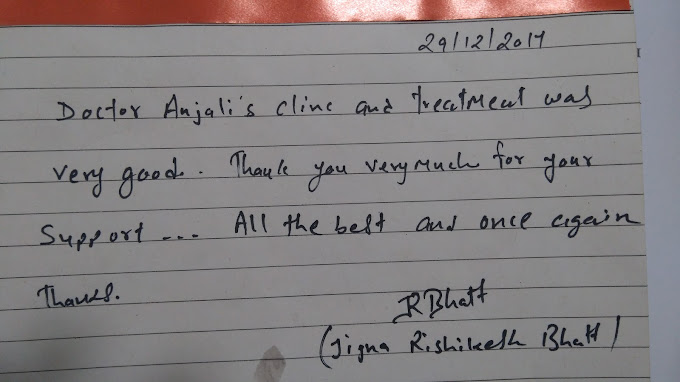 29/12/2017
Doctor Anjali's clinc and treatment was
very good. Thank you very much for your
Support ... All the best and once again
Thanks.
JRBhatt
(Jigna Rishikesh Bhatt)